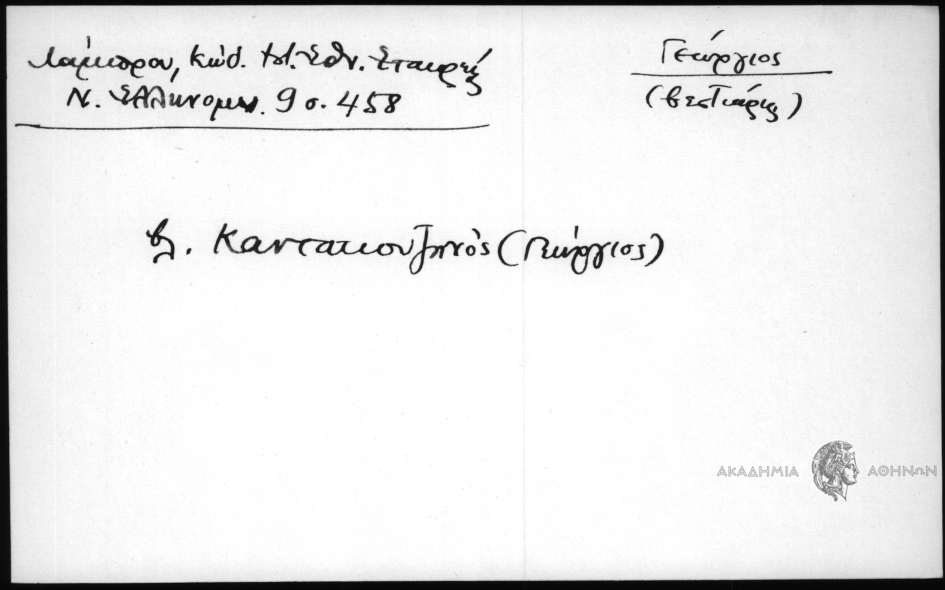 Λάμπρου, Κώδ. Ἱστ. Ἐθν. Ἑταιρείας
Ν. Ἑλληνομν. 9 σ. 458
Γεώργιος
(βεστιάρης)
βλ. Καντακουζηνὸς (Γεώργιος)
ΑΚΑΔΗΜΙΑ ΑΘΗΝΩΝ